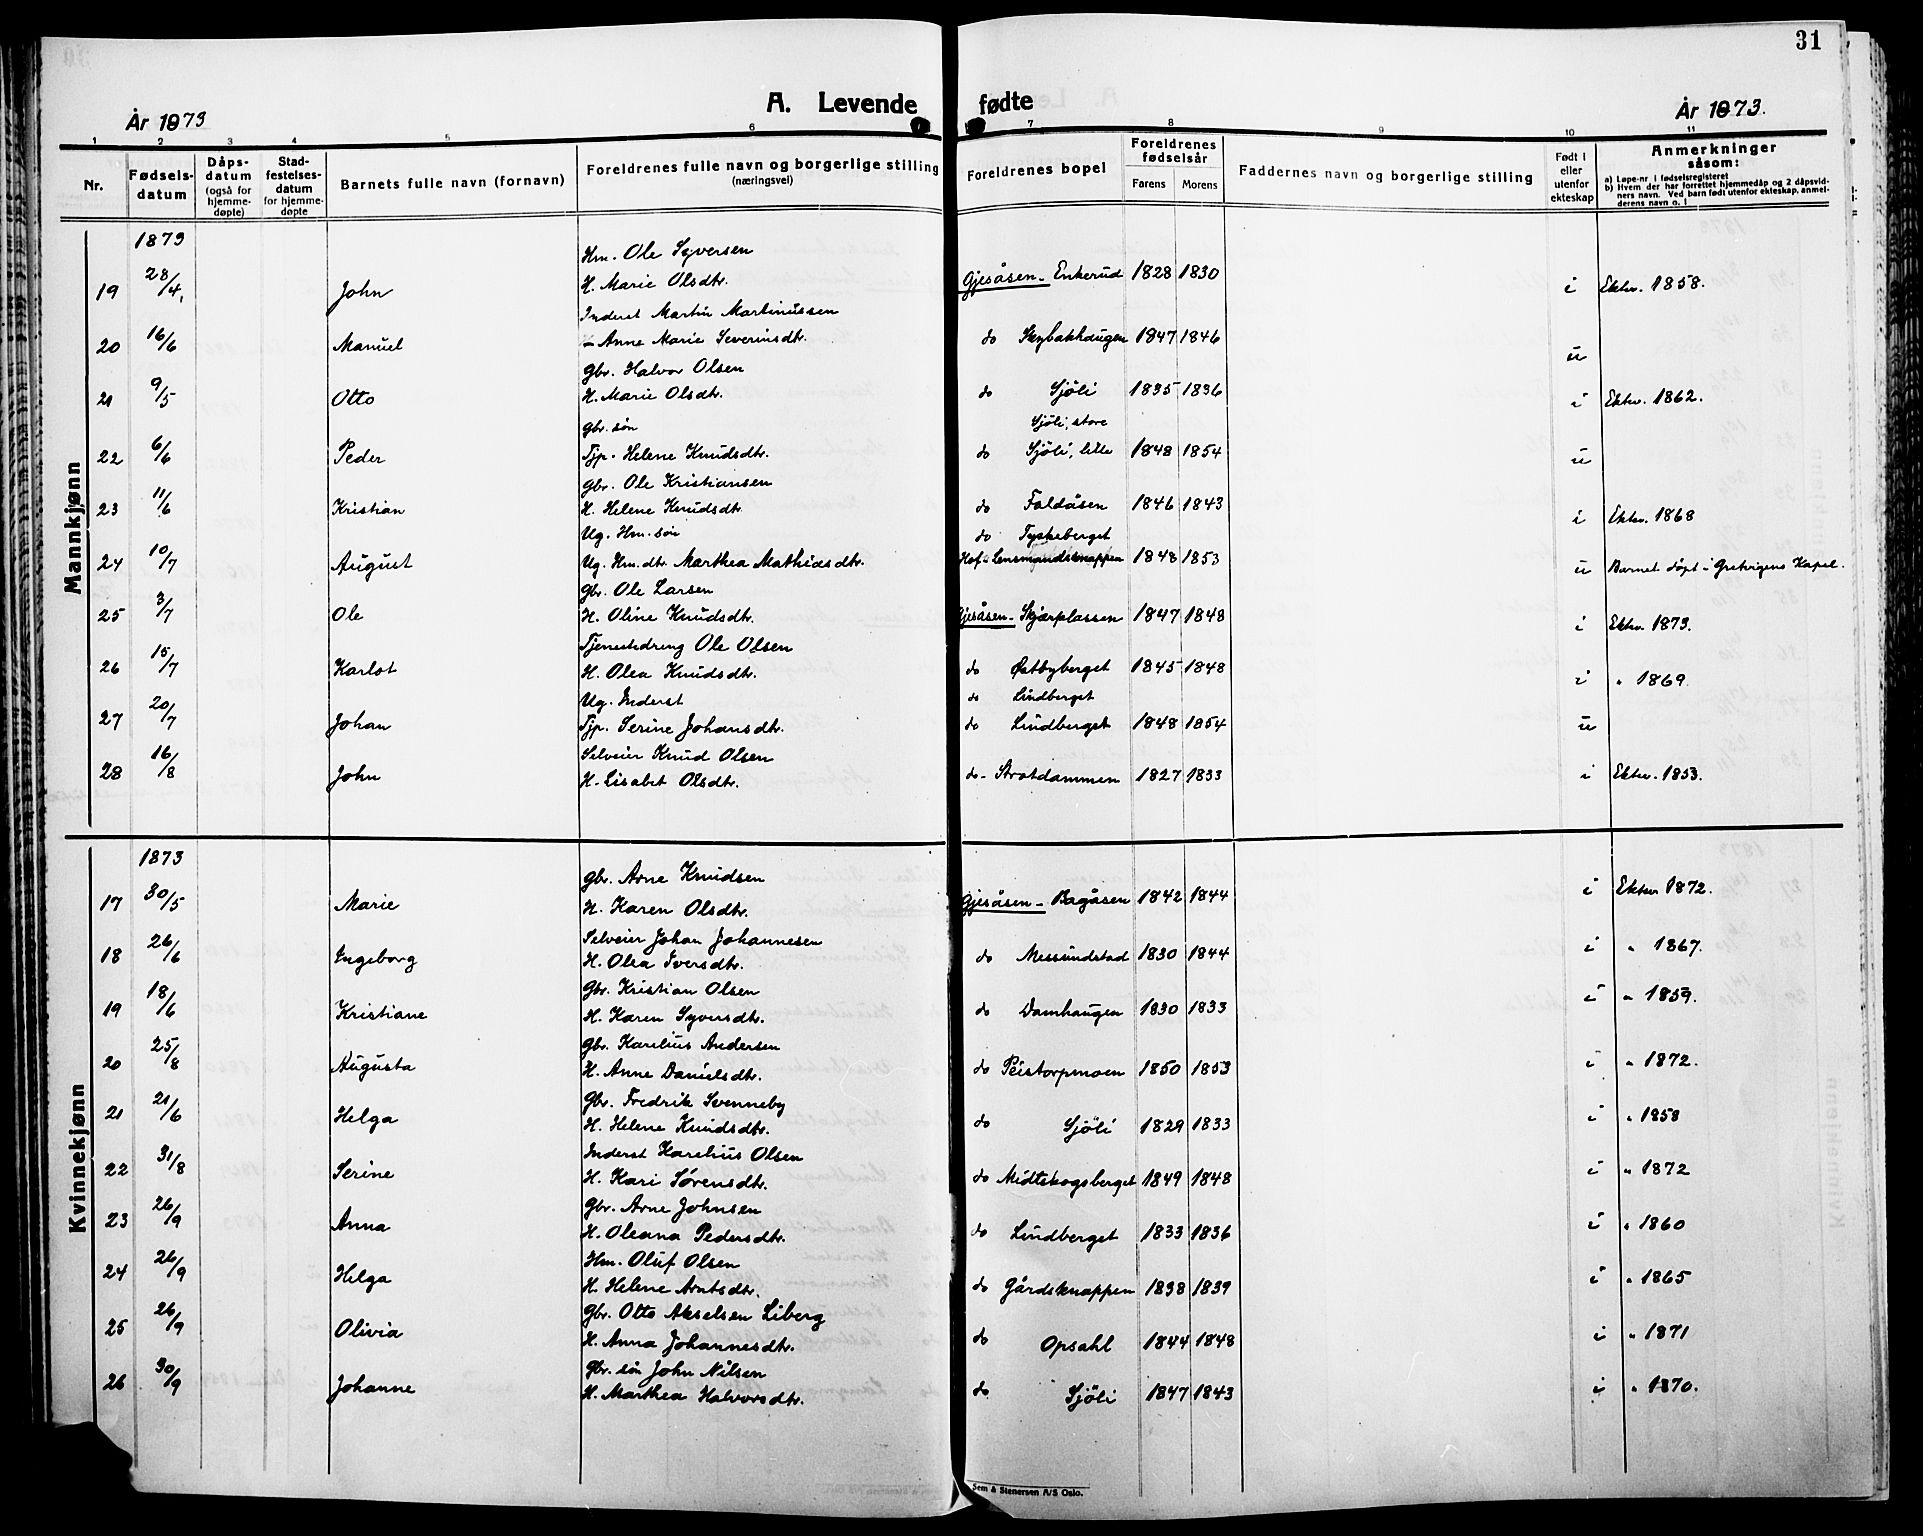 31
A. Levende fødte
År 1873
År 1873.
1 2 3 4 5 6 7 8 9 10 11
Nr. | Fødselsdatum | Dåpsdatum (også for hjemmedøpte) | Stadfestelsesdatum for hjemmedøpte | Barnets fulle navn (fornavn) | Foreldrenes fulle navn og borgerlige stilling (næringsvei) | Foreldrenes bopel | Foreldrenes fødselsår Farens Morens | Faddernes navn og borgerlige stilling | Født i eller utenfor ekteskap | Anmerkninger såsom:
a) Løpe-nr i fødselsregisteret
b) Hvem der har forrettet hjemmedåp og 2 dåpsvidners navn. Ved barn født utenfor ekteskap, anmelderens navn o. l
Mannkjønn
1873
Hm. Ole Syversen
19 28/4 John H. Marie Olsdtr. Gjesåsen - Enkerud 1828 1830 i Ektev. 1858.
Inderst Martin Martinussen
20 16/6 Manuel - Anne Marie Severinsdtr. do Skybakhaugen 1847 1846 u
Gbr. Halvor Olsen
21 9/5 Otto H. Marie Olsdtr. do Sjöli 1835 1836 i Ektev. 1862.
Gbr. søn Sjöli, store
22 6/6 Peder Tjp. Helene Knudsdtr. do Sjöli, lille 1848 1854 u
Gbr. Ole Kristiansen
23 11/6 Kristian H. Helene Knudsdtr. do Faldåsen 1846 1843 i Ektev. 1868
Ug. Hm. søn do Tyskeberget
24 10/7 August Ug. Hm. dtr. Marthea Mathisdtr. Hof - Lensmandsknappen 1848 1853 u Barnet døpt i Gretvigens Kapel.
Gbr. Ole Larsen
25 3/7 Ole H. Oline Knudsdtr. Gjesåsen - Skjærplassen 1847 1848 i Ektev. 1873.
Tjenestedreng Ole Olsen
26 15/7 Karlot H. Olea Knudsdtr. do Østbyberget 1845 1848 i " 1869
Ug. Inderst do Lindberget
27 20/7 Johan Tjp. Serine Johansdtr. do Lindberget 1848 1854 u
Selveier Knud Olsen
28 16/8 John H. Lisabet Olsdtr. do - Strotdammen 1827 1833 i Ektev. 1853.
Kvinnekjønn
1873
Gbr. Arne Knudsen
17 30/5 Marie H. Karen Olsdtr. Gjesåsen - Bagåsen 1842 1844 i Ektev 1872.
Selveier Johan Johannesen
18 26/6 Ingeborg H. Olea Iversdtr. do Messundstad 1830 1844 i " 1867.
Gbr. Kristian Olsen
19 18/6 Kristiane H. Karen Syversdtr. do Damhaugen 1830 1833 i " 1859.
Gbr. Karelius Andersen
20 25/8 Augusta H. Anne Danielsdtr. do Peistorpmoen 1850 1853 i " 1872.
Gbr. Fredrik Svenneby
21 21/6 Helga H. Helene Knudsdtr. do Sjöli 1829 1833 i " 1858
Inderst Karelius Olsen
22 31/8 Serine H. Kari Sørensdtr. do Midtskogsberget 1849 1848 i " 1872
Gbr. Arne Johnsen
23 26/9 Anna H. Oleana Pedersdtr. do Lindberget 1833 1836 i " 1860
Hm. Oluf Olsen
24 26/9 Helga H. Helene Arntsdtr. do Gårdsknappen 1838 1839 i " 1865
Gbr. Otto Akselsen Liberg
25 26/9 Olivia H. Anna Johannesdtr. do Opsahl 1844 1848 i " 1871
Gbr. søn John Nilsen
26 30/9 Johanne H. Marthea Halvorsdtr. do Sjöli 1847 1843 i " 1870.
Sem & Stenersen A/S Oslo.